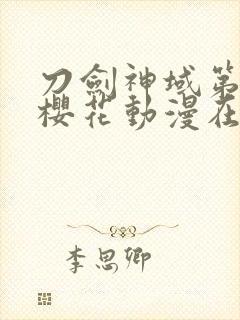 刀劍神域第
櫻花動漫在
李思卿